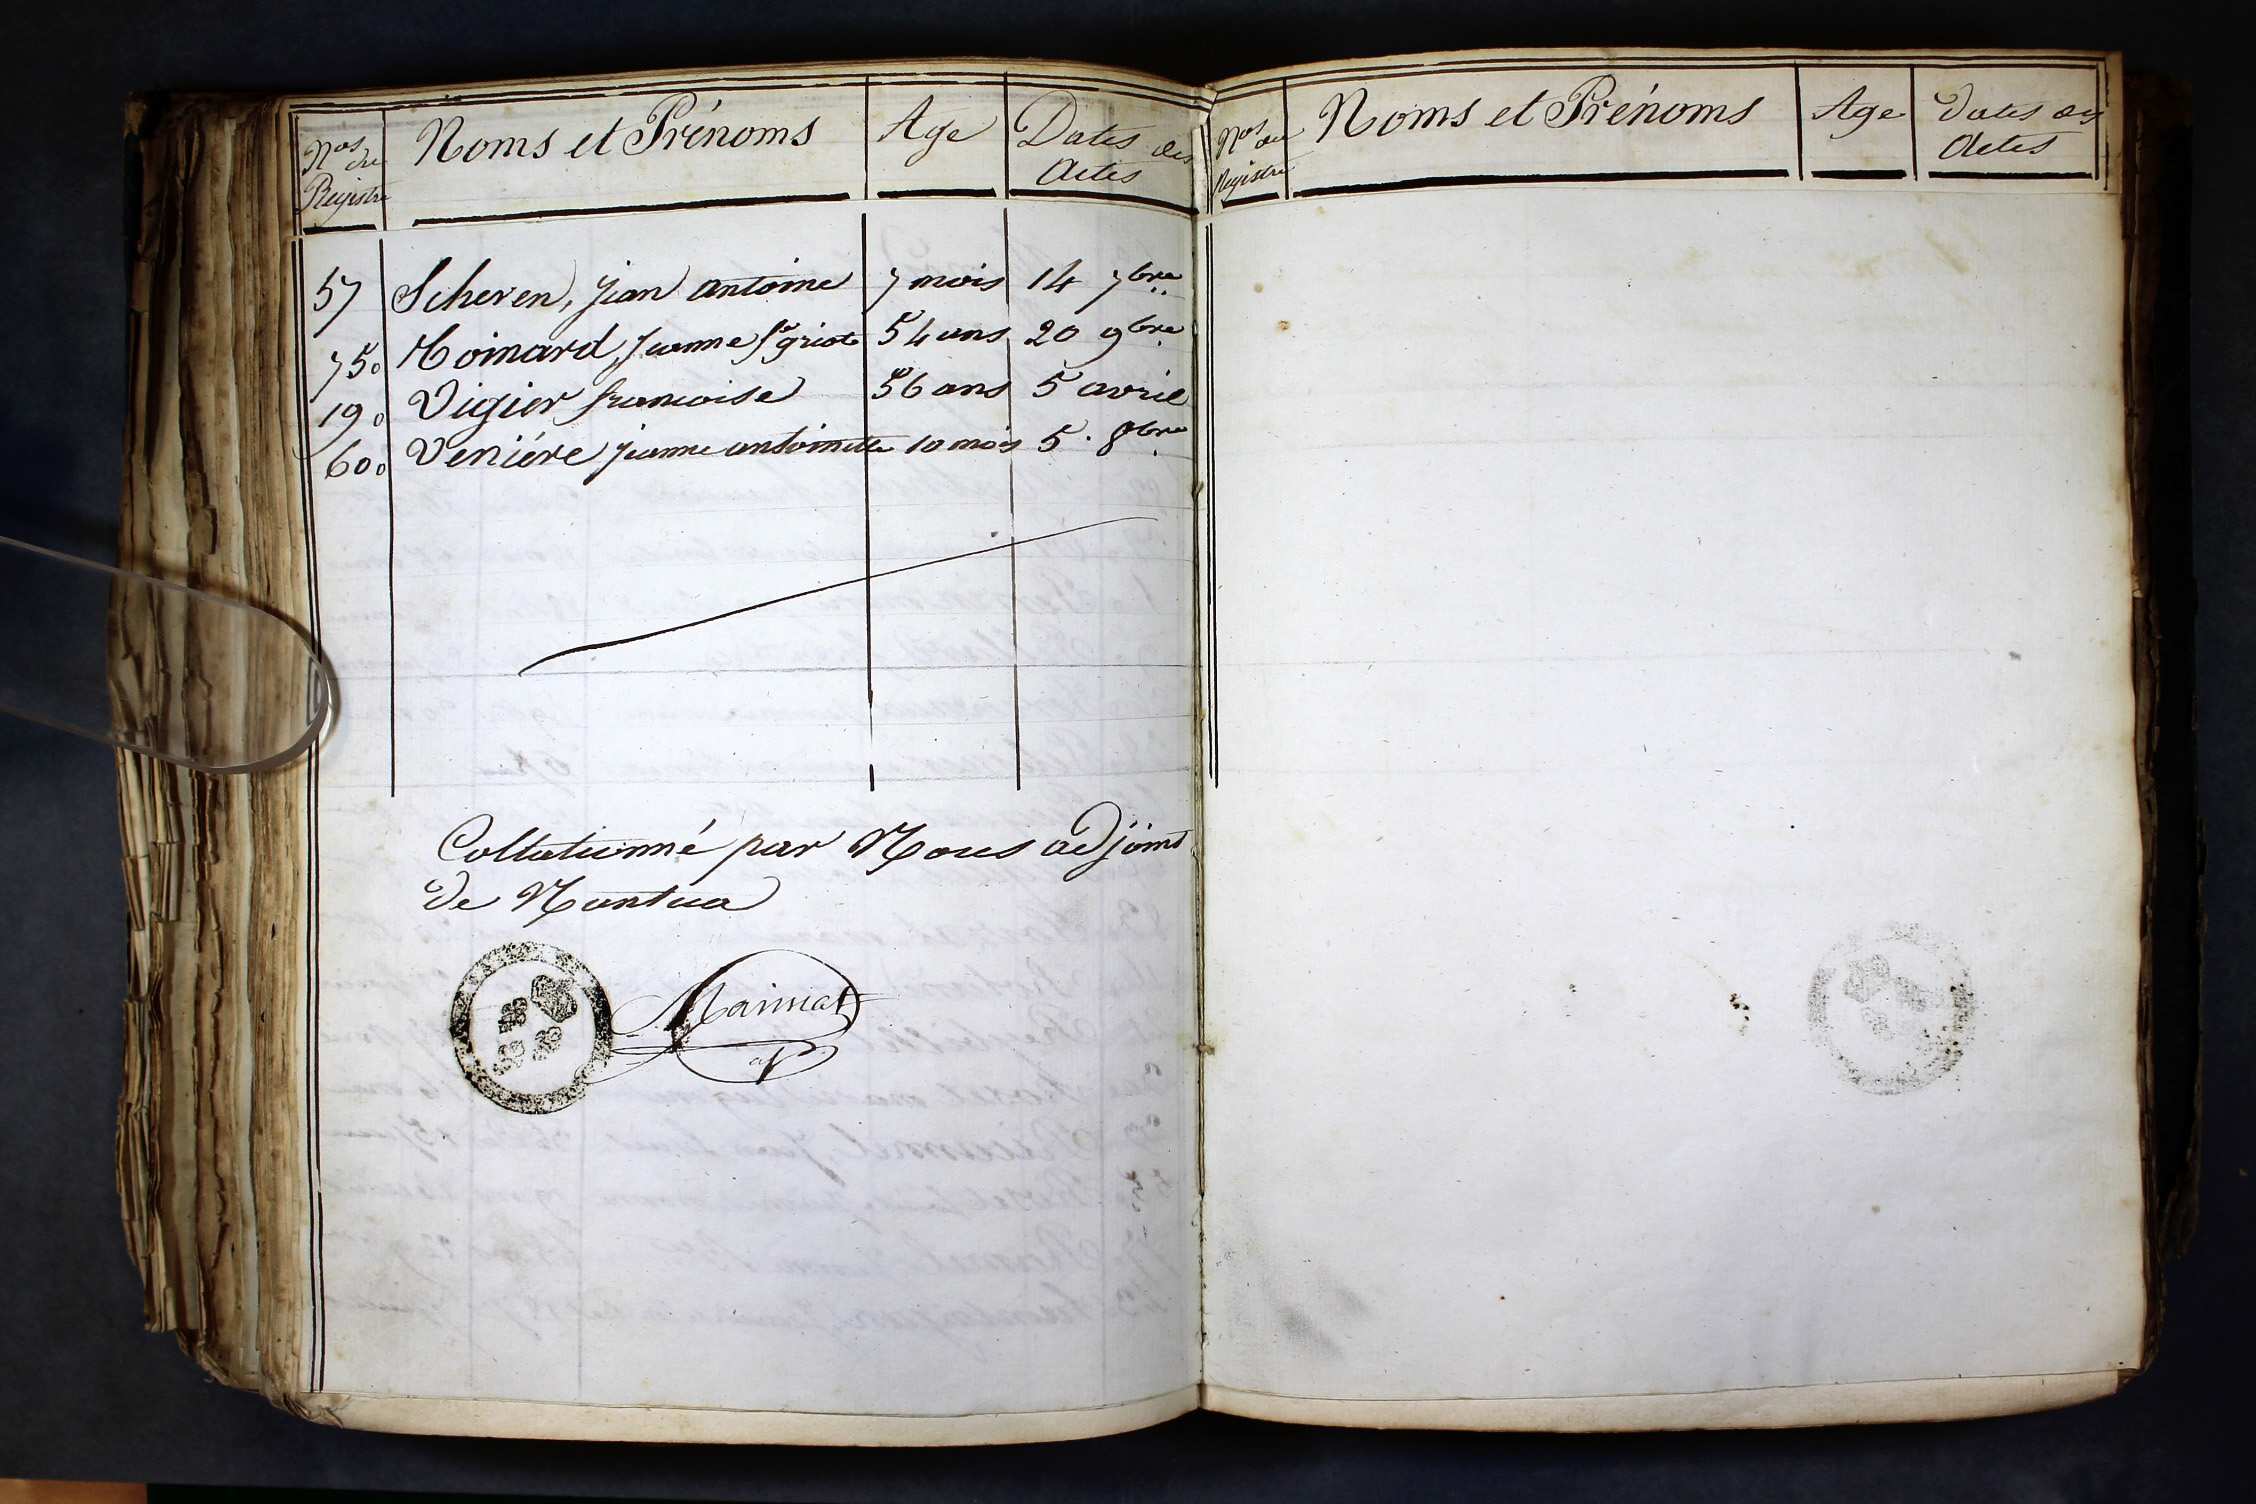 Nos du Registre Noms et Prénoms Age Dates des Actes
57 Scheren, jean antoine 7 mois 14 7bre
75. Toinard, jeanne fe griot 54 ans 20 9bre
19. Vigier françoise 56 ans 5 avril
60. Veniére jeanne antoinette 10 mois 5. 8bre
Collationné par Nous adjoint
de Nantua
Nos du Registre Noms et Prénoms Age Dates des Actes